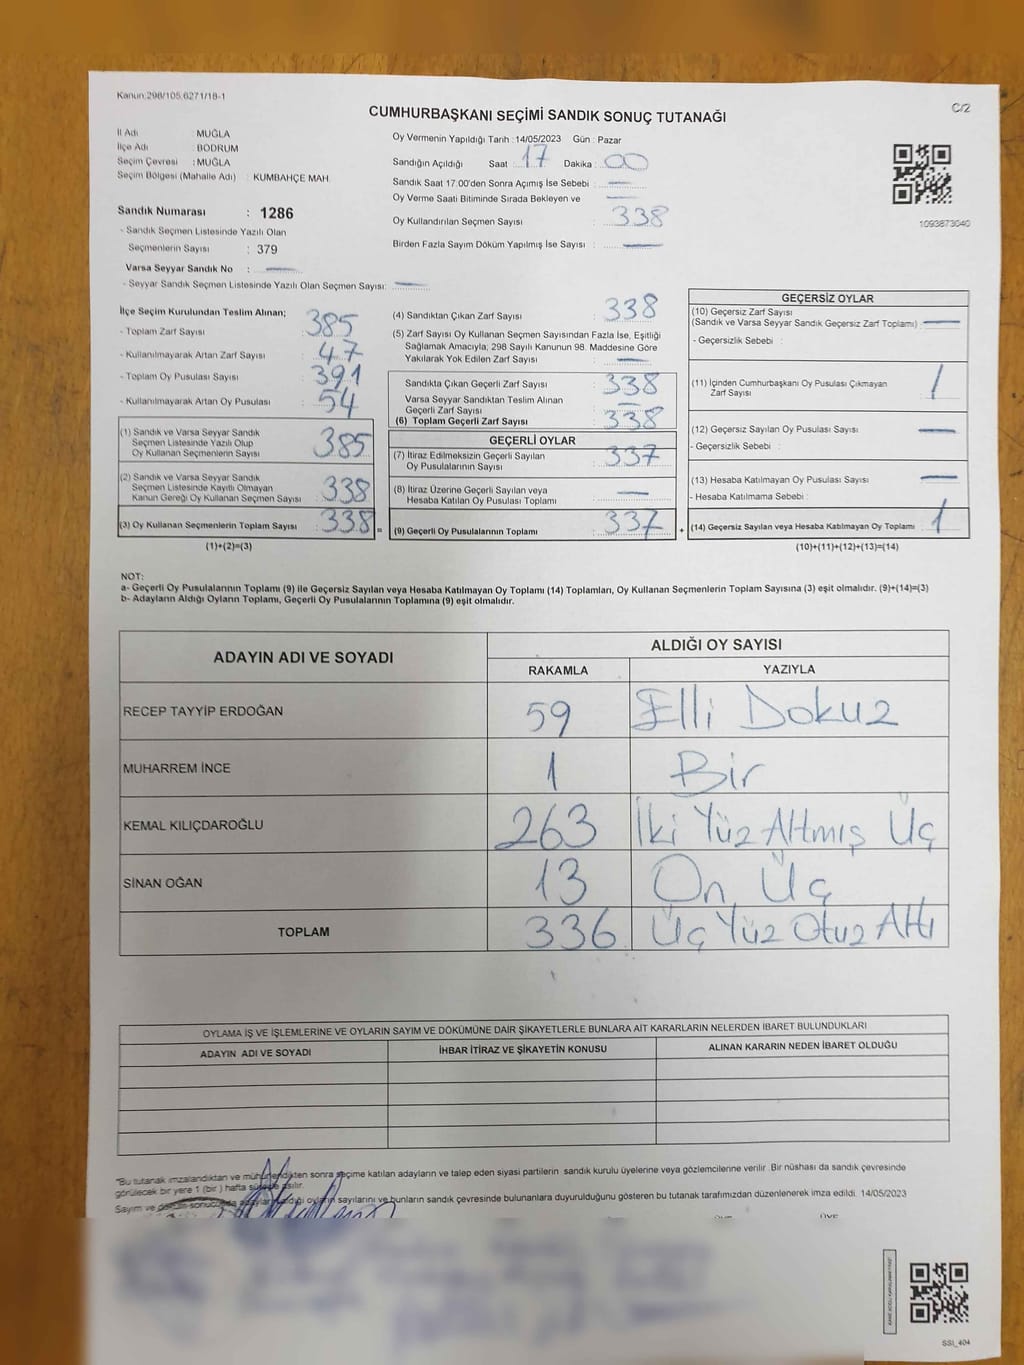 Kanun:298/105,6271/18-1
C/2
CUMHURBAŞKANI SEÇİMİ SANDIK SONUÇ TUTANAĞI
İl Adı : MUĞLA
İlçe Adı : BODRUM
Seçim Çevresi : MUĞLA
Seçim Bölgesi (Mahalle Adı) : KUMBAHÇE MAH.
Sandık Numarası : 1286
- Sandık Seçmen Listesinde Yazılı Olan
Seçmenlerin Sayısı : 379
Varsa Seyyar Sandık No :
- Seyyar Sandık Seçmen Listesinde Yazılı Olan Seçmen Sayısı:
Oy Vermenin Yapıldığı Tarih : 14/05/2023 Gün : Pazar
Sandığın Açıldığı Saat : 17 Dakika : 00
Sandık Saat 17:00'den Sonra Açımış İse Sebebi :
Oy Verme Saati Bitiminde Sırada Bekleyen ve
Oy Kullandırılan Seçmen Sayısı : 338
Birden Fazla Sayım Döküm Yapılmış İse Sayısı :
1093873040
İlçe Seçim Kurulundan Teslim Alınan;
- Toplam Zarf Sayısı : 385
- Kullanılmayarak Artan Zarf Sayısı : 47
- Toplam Oy Pusulası Sayısı : 391
- Kullanılmayarak Artan Oy Pusulası : 54
(1) Sandık ve Varsa Seyyar Sandık
Seçmen Listesinde Yazılı Olup
Oy Kullanan Seçmenlerin Sayısı : 385
(2) Sandık ve Varsa Seyyar Sandık
Seçmen Listesinde Kayıtlı Olmayan
Kanun Gereği Oy Kullanan Seçmen Sayısı : 338
(3) Oy Kullanan Seçmenlerin Toplam Sayısı : 338 =
(1)+(2)=(3)
(4) Sandıktan Çıkan Zarf Sayısı : 338
(5) Zarf Sayısı Oy Kullanan Seçmen Sayısından Fazla İse, Eşitliği
Sağlamak Amacıyla; 298 Sayılı Kanunun 98. Maddesine Göre
Yakılarak Yok Edilen Zarf Sayısı :
Sandıkta Çıkan Geçerli Zarf Sayısı : 338
Varsa Seyyar Sandıktan Teslim Alınan
Geçerli Zarf Sayısı :
(6) Toplam Geçerli Zarf Sayısı : 338
GEÇERLİ OYLAR
(7) İtiraz Edilmeksizin Geçerli Sayılan
Oy Pusulalarının Sayısı : 337
(8) İtiraz Üzerine Geçerli Sayılan veya
Hesaba Katılan Oy Pusulası Toplamı :
(9) Geçerli Oy Pusulalarının Toplamı : 337 +
GEÇERSİZ OYLAR
(10) Geçersiz Zarf Sayısı
(Sandık ve Varsa Seyyar Sandık Geçersiz Zarf Toplamı) :
- Geçersizlik Sebebi :
(11) İçinden Cumhurbaşkanı Oy Pusulası Çıkmayan
Zarf Sayısı : 1
(12) Geçersiz Sayılan Oy Pusulası Sayısı :
- Geçersizlik Sebebi :
(13) Hesaba Katılmayan Oy Pusulası Sayısı :
- Hesaba Katılmama Sebebi :
(14) Geçersiz Sayılan veya Hesaba Katılmayan Oy Toplamı : 1
(10)+(11)+(12)+(13)=(14)
NOT:
a- Geçerli Oy Pusulalarının Toplamı (9) ile Geçersiz Sayılan veya Hesaba Katılmayan Oy Toplamı (14) Toplamları, Oy Kullanan Seçmenlerin Toplam Sayısına (3) eşit olmalıdır. (9)+(14)=(3)
b- Adayların Aldığı Oyların Toplamı, Geçerli Oy Pusulalarının Toplamına (9) eşit olmalıdır.
ADAYIN ADI VE SOYADI
ALDIĞI OY SAYISI
RAKAMLA YAZIYLA
RECEP TAYYİP ERDOĞAN 59 Elli Dokuz
MUHARREM İNCE 1 Bir
KEMAL KILIÇDAROĞLU 263 İki Yüz Altmış Üç
SİNAN OĞAN 13 On Üç
TOPLAM 336 Üç Yüz Otuz Altı
OYLAMA İŞ VE İŞLEMLERİNE VE OYLARIN SAYIM VE DÖKÜMÜNE DAİR ŞİKAYETLERLE BUNLARA AİT KARARLARIN NELERDEN İBARET BULUNDUKLARI
ADAYIN ADI VE SOYADI İHBAR İTİRAZ VE ŞİKAYETİN KONUSU ALINAN KARARIN NEDEN İBARET OLDUĞU
"Bu tutanak imzalandıktan ve mühürlendikten sonra seçime katılan adayların ve talep eden siyasi partilerin sandık kurulu üyelerine veya gözlemcilerine verilir. Bir nüshası da sandık çevresinde
görülecek bir yere 1 (bir) hafta süreyle asılır.
Sayım ve döküm sonucunda adayların aldığı oyların sayılarını ve bunların sandık çevresinde bulunanlara duyurulduğunu gösteren bu tutanak tarafımızdan düzenlenerek imza edildi. 14/05/2023
ÜYE ÜYE
SSİ_404